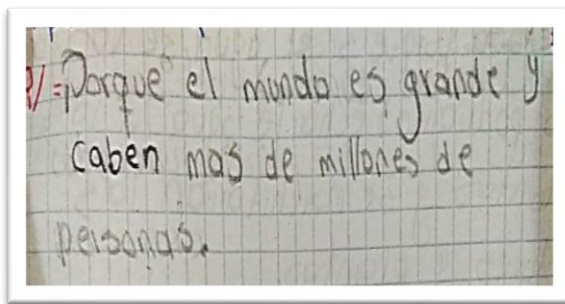 R/=Porque el mundo es grande y
caben mas de millones de
personas.